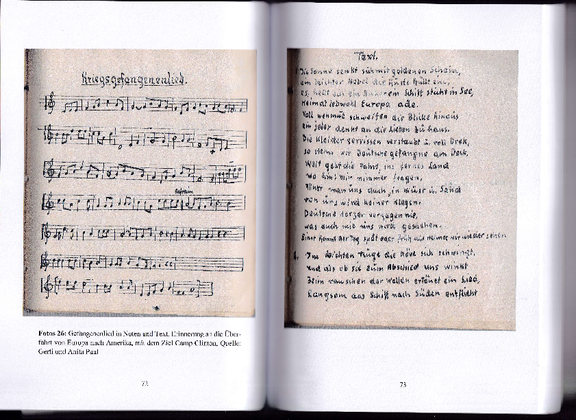 Kriegsgefangenenlied.
Refrain
Fotos 26: Gefangenenlied in Noten und Text. Erinnerung an die Über-
fahrt von Europa nach Amerika, mit dem Ziel Camp Clinton. Quelle:
Gerti und Anita Paul
72
Text.
Die Sonne senkt sich mit goldenem Schein,
ein leichter Nebel die Küste hüllt ein,
es ein Schiff sticht in See,
Heimat lebwohl Europa ade.
Voll wehmut schweifen die Blicke hinaus
ein jeder denkt an die Lieben zu haus.
Die Kleider zerrissen verstaubt u. voll Dreck,
so stehn wir Deutsche gefangne am Deck.
Weit geht die Fahrt, ins fernes Land
wo hin? wir nimmer fragen.
Führt man uns auch, in Wüst u. Sand
von uns wird keiner klagen.
Deutsche Herzen verzagen nie,
was auch mit uns mag geschehen.
Einer kommt der Tag spät oder früh die Heimat wir wieder sehen
Im leichten Tuge die Möve sich schwingt,
und als ob sie zum Abschied uns winkt
Beim rauschen der Wellen ertönet ein Lied,
Langsam das Schiff nach Süden entflieht
73